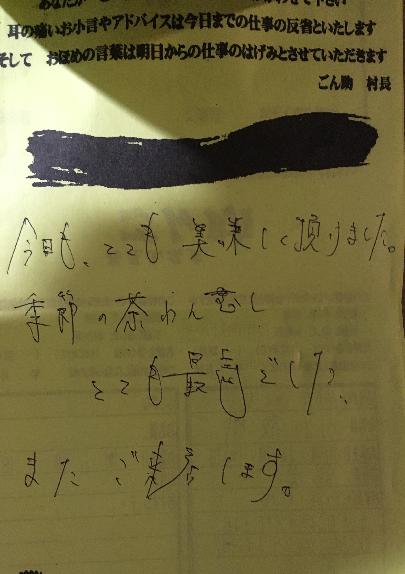 あなたが せて下さい
耳の痛いお小言やアドバイスは今日までの仕事の反省といたします
そして おほめの言葉は明日からの仕事のはげみとさせていただきます
ごん助 村長
今日も、とても 美味しく頂けました。
季節の茶わん蒸し
とても最高でした。
また ご来店します。